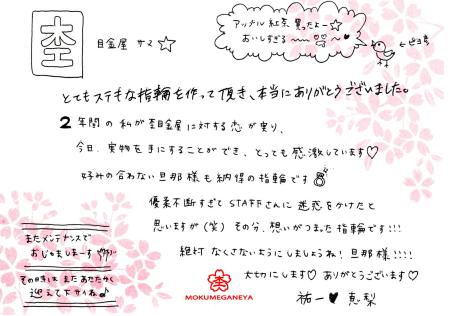 杢
杢目金屋 サマ☆
アップル紅茶 買ったよー☆
おいしすぎる〜〜♡
とてもステキな指輪を作って頂き、本当にありがとうございました。
2年間の私が杢目金屋に対する恋が実り、
今日、実物を手にすることができ、とっても感激しています♡
好みの合わない旦那様も納得の指輪です
優柔不断すぎてSTAFFさんに迷惑をかけたと
思いますが(笑)その分、想いがつまった指輪です!!!
絶対なくさないようにしましょうね!旦那様!!!!
大切にします♡ありがとうございます♡
祐一♥恵梨
またメンテナンスで
おじゃましまーす
その時は またあたたかく
迎えて下サイね♪
MOKUMEGANEYA